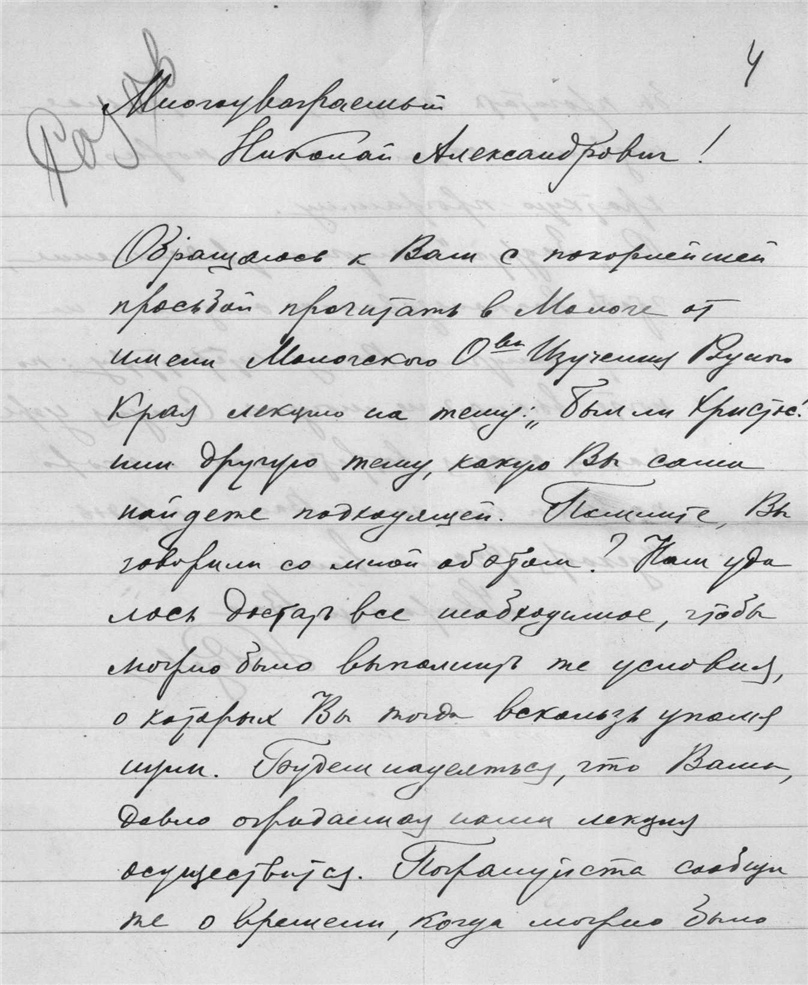 4
Многоуважаемый
Николай Александрович!
Обращаюсь к Вам с покорнейшей
просьбой прочитать в Мологе от
имени Мологского О‑ва Изучения Родного
Края лекцию на тему: „был ли Христос“
или другую тему, какую Вы сами
найдете подходящей. Помните, Вы
говорили со мной об этом? Нам уда
лось достать все необходимое, чтобы
можно было выполнить те условия,
о которых Вы тогда вскользь упомя
нули. Будем надеяться, что Ваша,
давно ожидаемая нами лекция
осуществится. Пожалуйста сообщи
те о времени, когда можно было